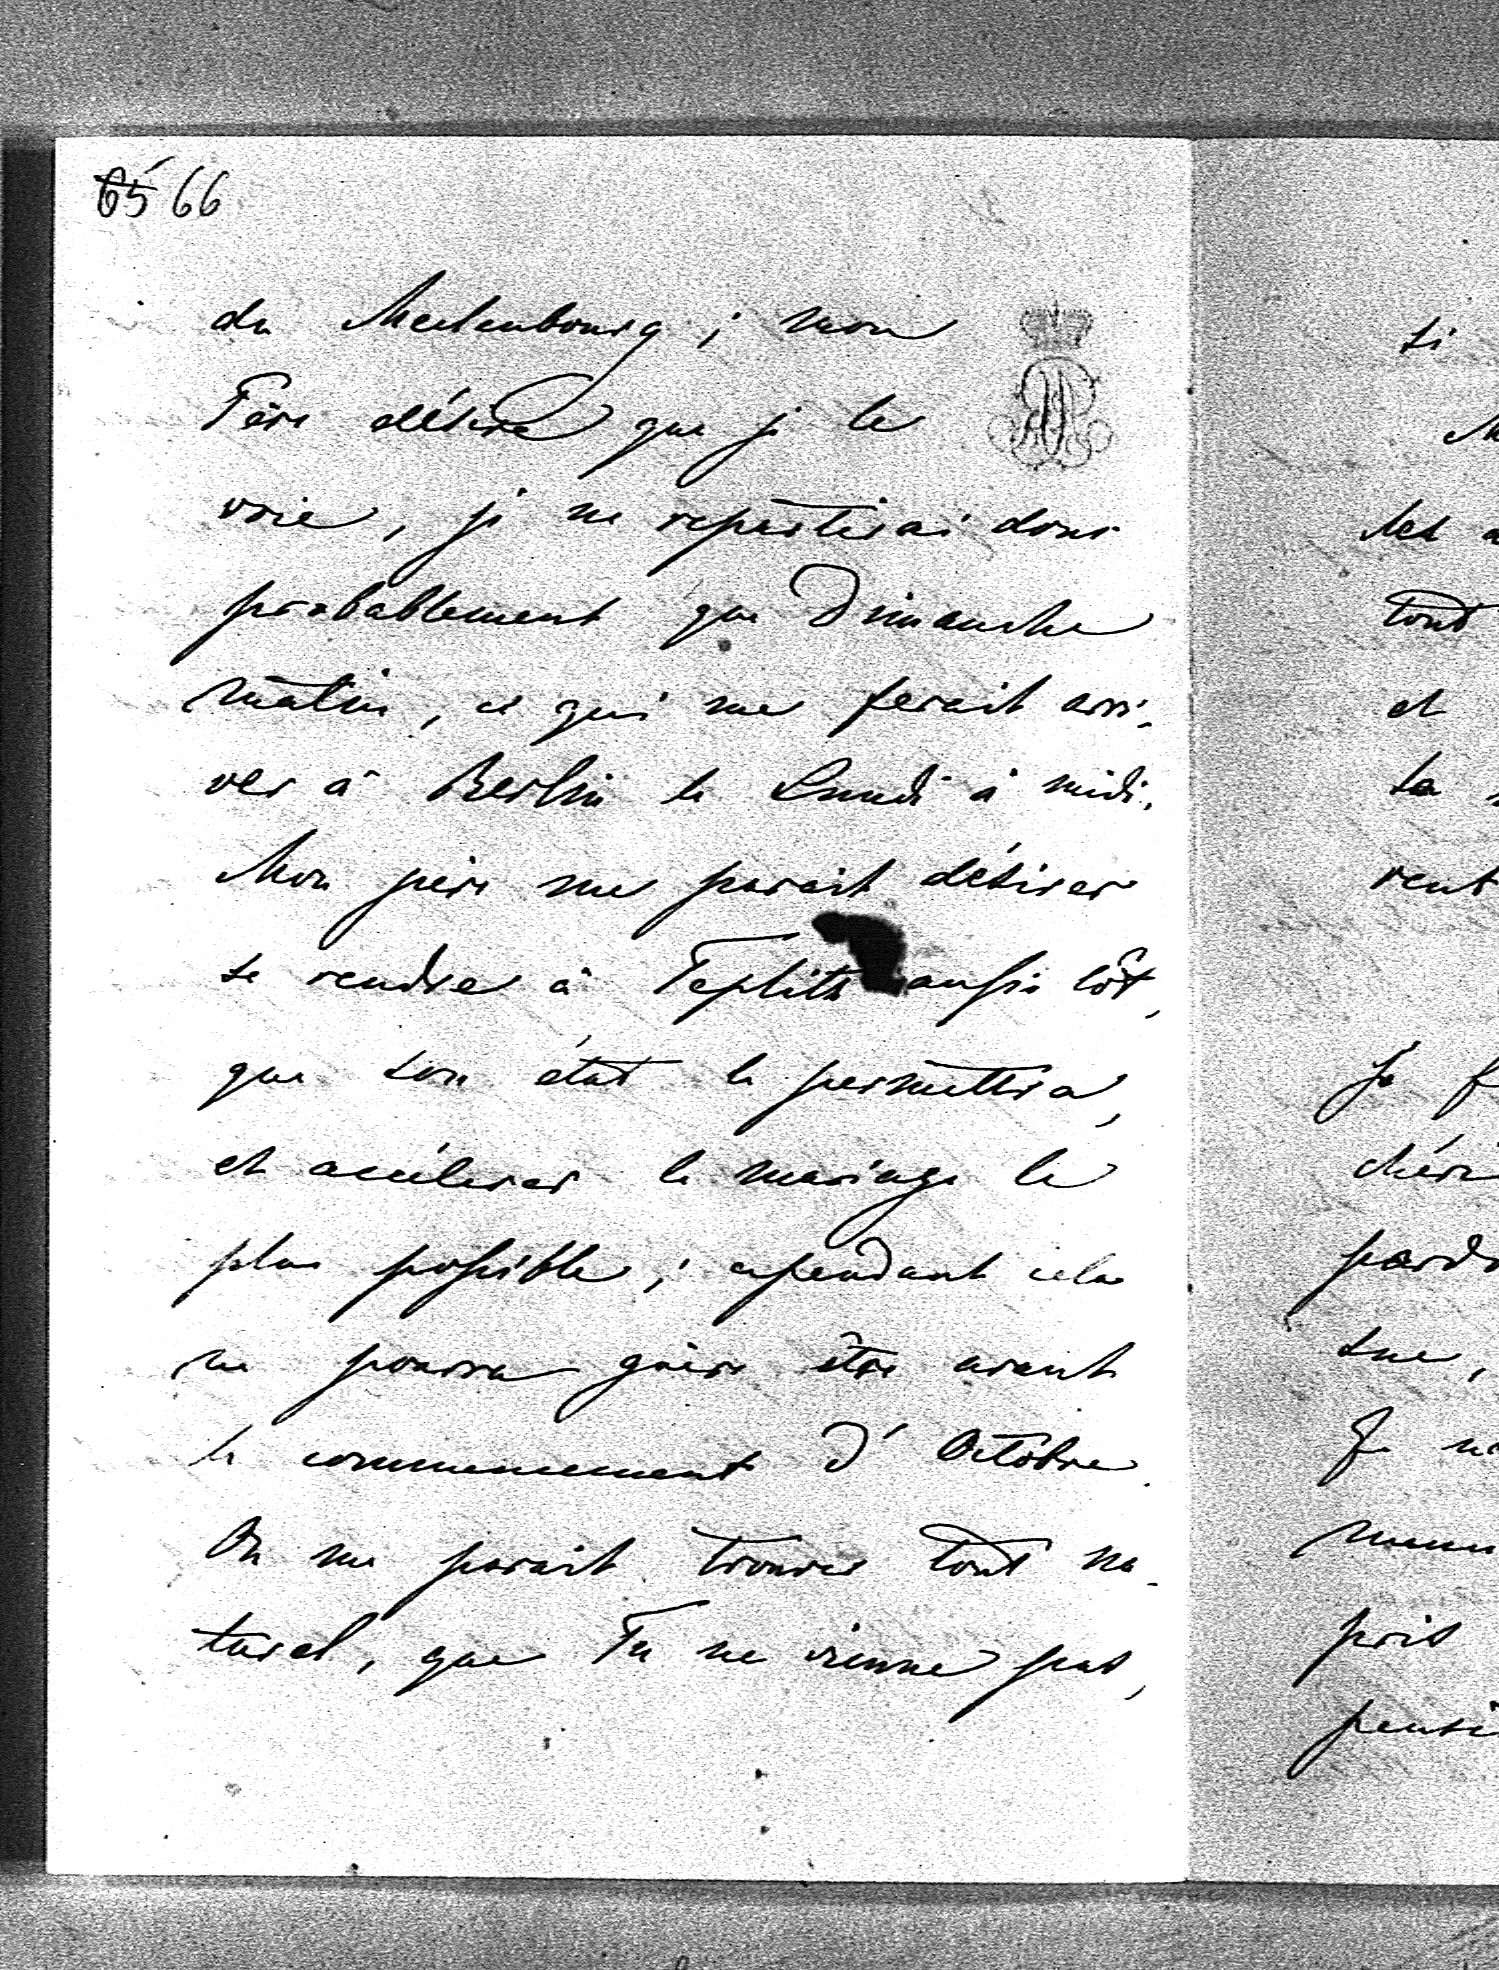 65 66
du Meclenbourg ; mon
Père désire que je le
voie, je ne repartirai donc
probablement que Dimanche
matin, ce qui me ferait arri-
ver à Berlin le Lundi à midi.
Mon père me parait désirer
se rendre à Teplitz aussi tôt,
que son état le permettra,
et accélerer le mariage le
plus possible ; cependant cela
ne pourra guère être avant
le commencement d'Octobre.
On me parait trouver tout na-
turel, que Tu ne vienne pas,
si
tout
et
la
Je
chéri
pard
sue,
Je
pris